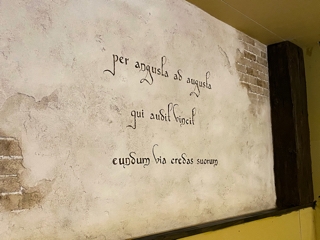 per angusta ad augusta
qui audit vincit
eundum via credas suorum